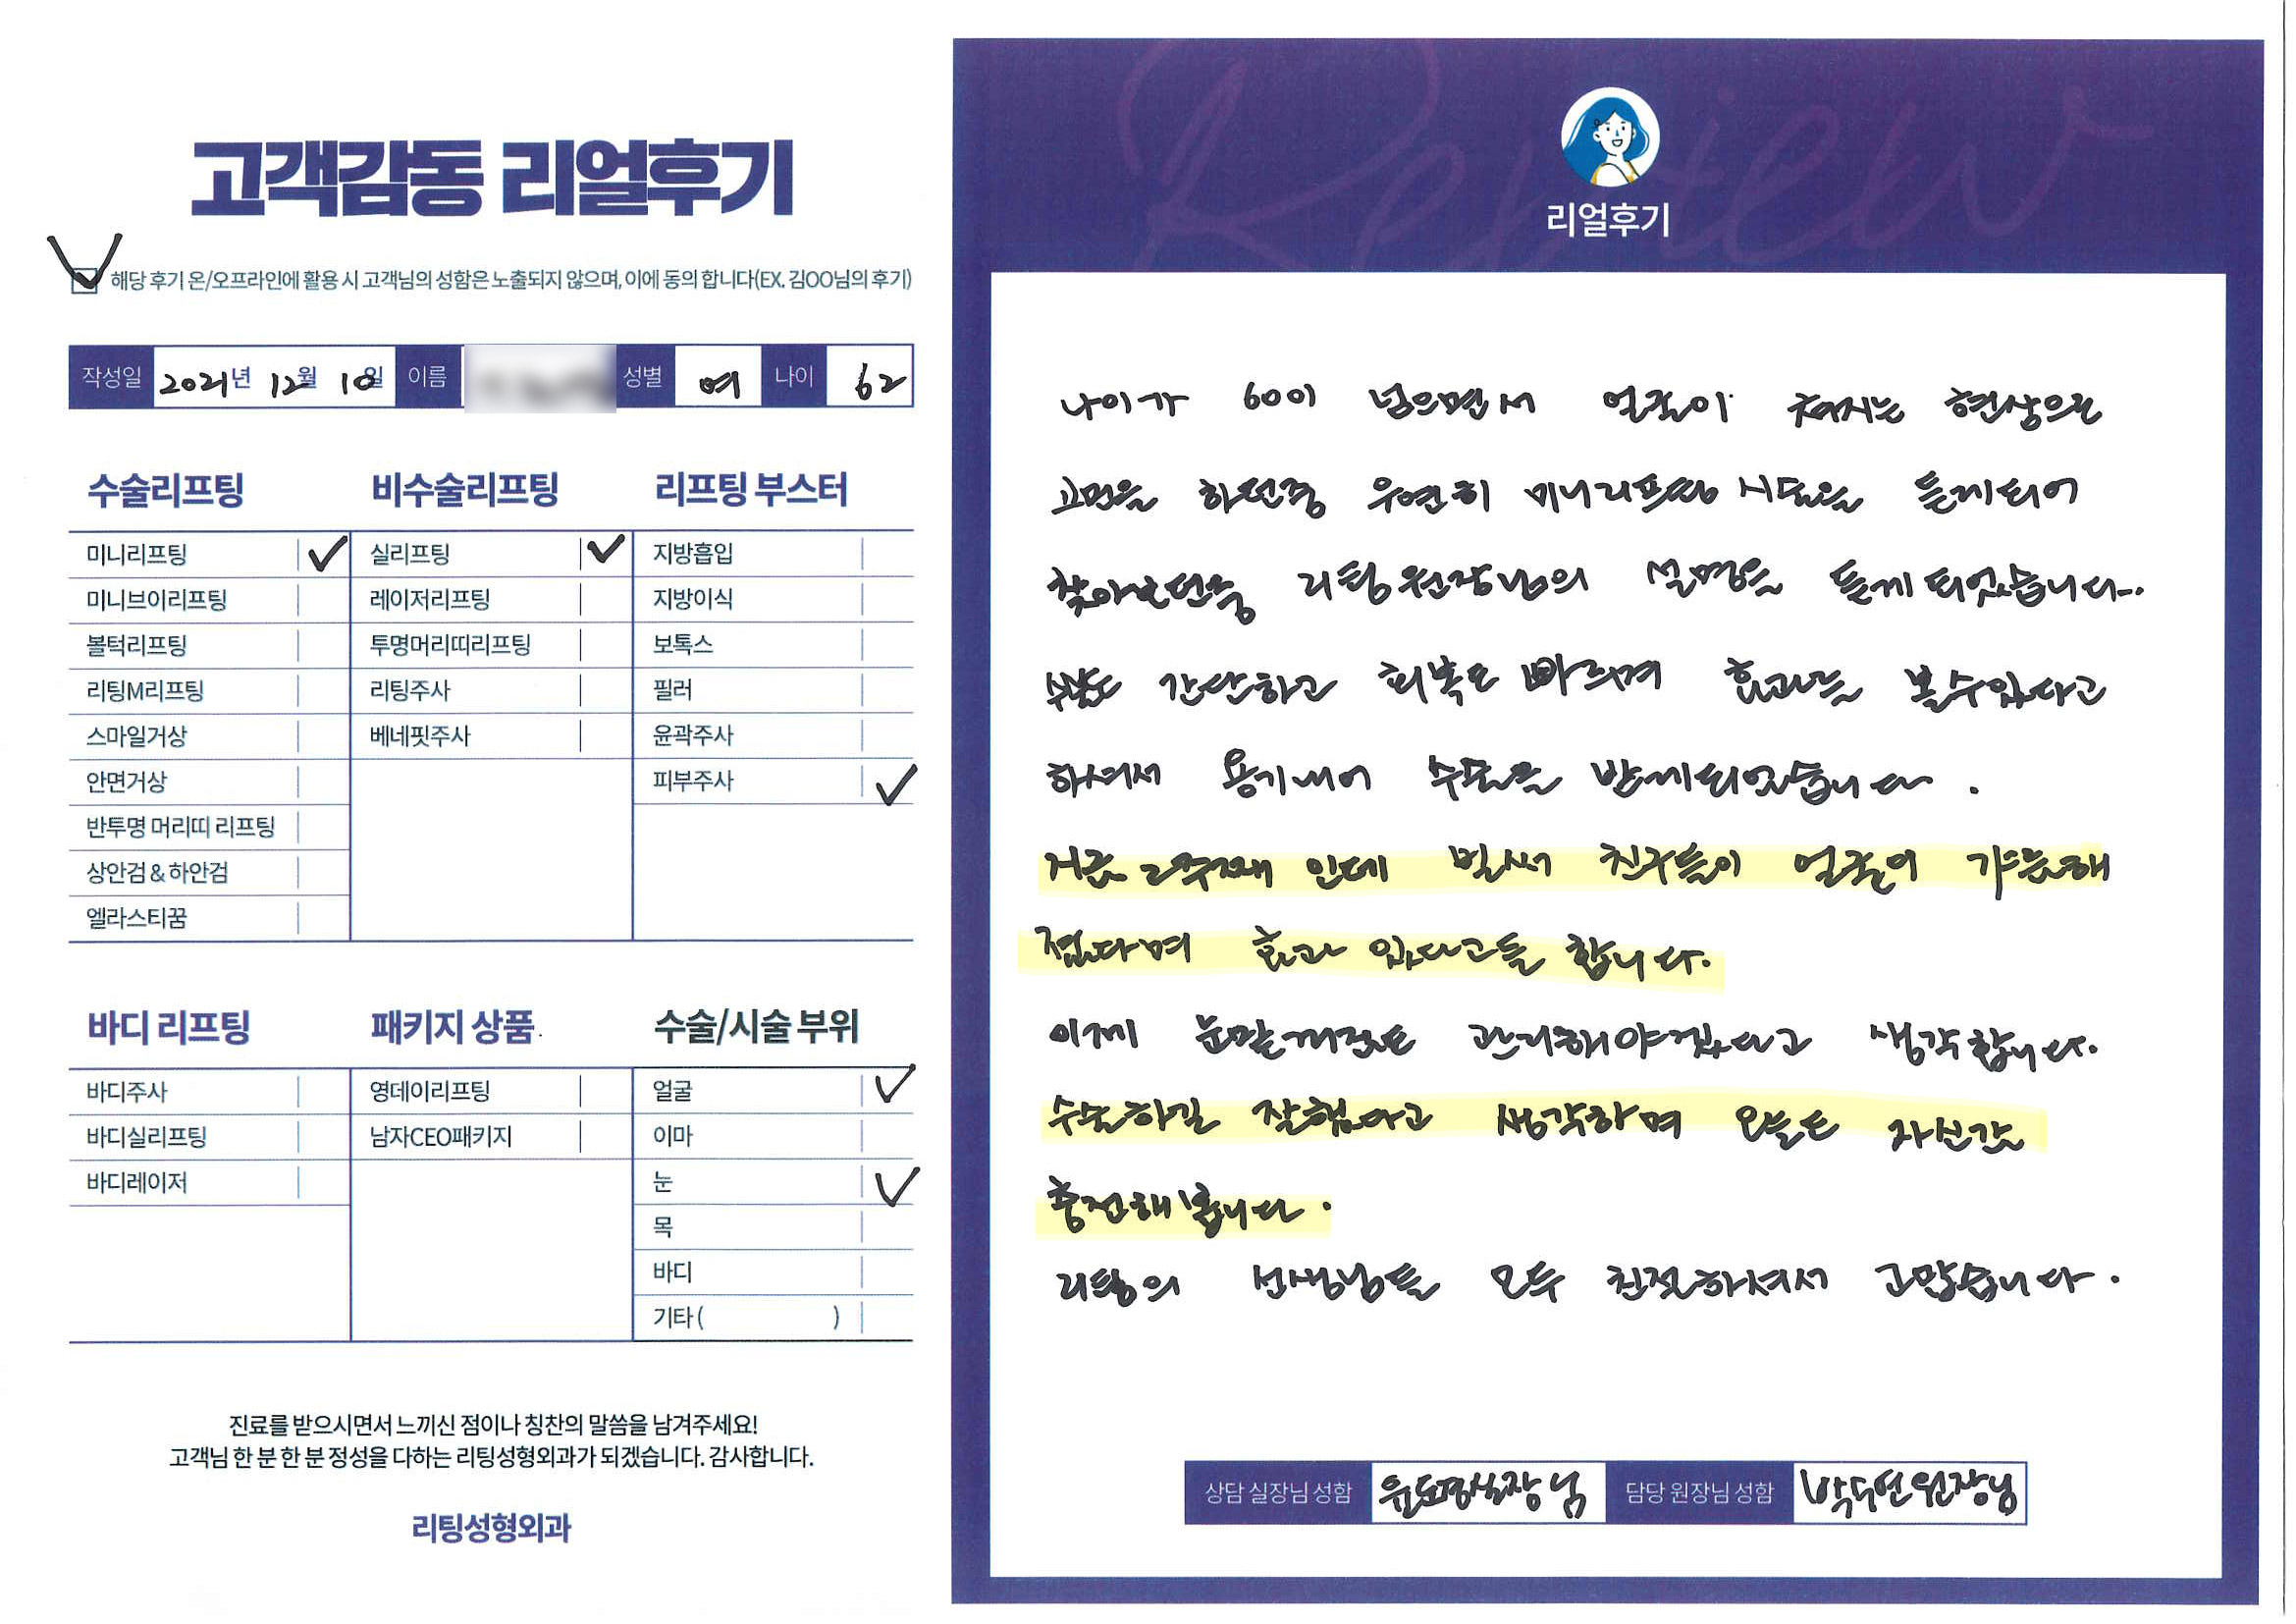 고객감동 리얼후기
해당 후기 온/오프라인에 활용 시 고객님의 성함은 노출되지 않으며, 이에 동의 합니다(EX. 김OO님의 후기)
작성일 2021년 12월 10일 이름 성별 여 나이 62
수술리프팅
미니리프팅
미니브이리프팅
볼턱리프팅
리팅M리프팅
스마일거상
안면거상
반투명 머리띠 리프팅
상안검 & 하안검
엘라스티꿈
비수술리프팅
실리프팅
레이저리프팅
투명머리띠리프팅
리팅주사
베네핏주사
리프팅 부스터
지방흡입
지방이식
보톡스
필러
윤곽주사
피부주사
바디 리프팅
바디주사
바디실리프팅
바디레이저
패키지 상품
영데이리프팅
남자CEO패키지
수술/시술 부위
얼굴
이마
눈
목
바디
기타 ( )
진료를 받으시면서 느끼신 점이나 칭찬의 말씀을 남겨주세요!
고객님 한 분 한 분 정성을 다하는 리팅성형외과가 되겠습니다. 감사합니다.
리팅성형외과
Review
리얼후기
나이가 60이 넘으면서 얼굴이 쳐지는 현상으로
고민을 하던중 우연히 미니리프팅 시술을 듣게되어
찾아보던중 리팅원장님의 설명을 듣게 되었습니다..
수술도 간단하고 회복도 빠르며 효과를 볼수있다고
하셔서 용기내어 수술을 받게되었습니다.
지금 2주째 인데 벌써 친구들이 얼굴이 갸름해
졌다며 효과 있다고들 합니다.
이제 눈밑꺼짐도 관리해야겠다고 생각합니다.
수술하길 잘했다고 생각하며 오늘도 자신감
충전해 봅니다.
리팅의 선생님들 모두 친절하셔서 고맙습니다.
상담 실장님 성함 윤도경실장님 담당 원장님 성함 박수연원장님